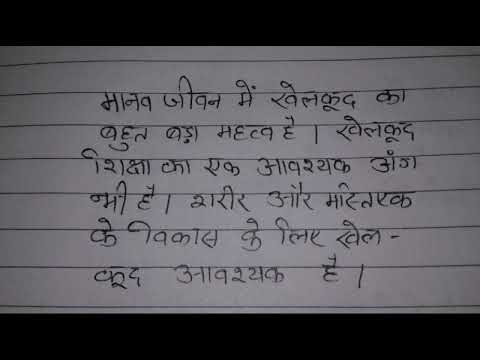 मानव जीवन में खेलकूद का
बहुत बड़ा महत्व है । खेलकूद
शिक्षा का एक आवश्यक अंग
भी है । शरीर और मस्तिष्क
के विकास के लिए खेल -
कूद आवश्यक है ।